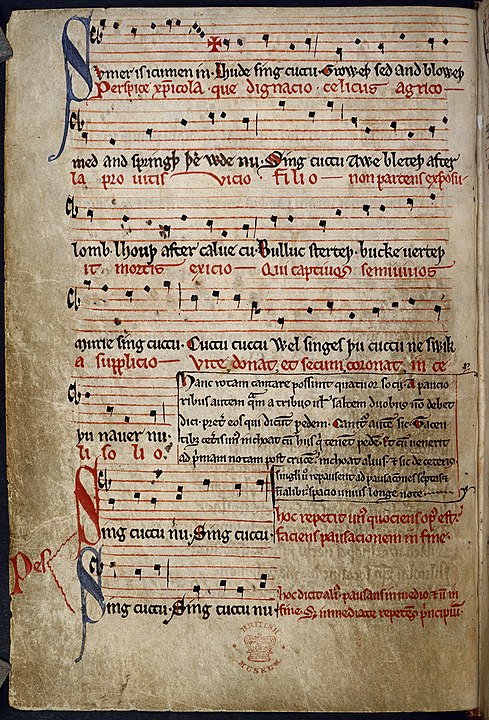 Sumer is icumen in· Lhude sing cuccu· Groweþ sed and bloweþ
Perspice xp̄icola· que dignacio· celicus agrico-
med and springþ þe wde nu· Sing cuccu Awe bleteþ after
la pro uitis vicio· filio non parcens exposu-
lomb· lhouþ after calue cu· Bulluc sterteþ· bucke uerteþ
it mortis exicio Qui captiuos semiuiuos
murie sing cuccu· Cuccu cuccu Wel singes þu cuccu ne swik
a supplicio Vite donat et secum coronat in ce-
þu nauer nu·
li so li o·
Hanc rotam cantare possunt quatuor socij· A paucio
ribus autem a tribus uel saltem duobus non debet
dici· preter eos qui dicunt pedem· Canitur autem sic· Tacen
tibus ceteris unus inchoat cum hiis qui tenent pedem· et cum uenerit
ad primam notam post crucem· inchoat alius· et sic de ceteris·
singuli repausent ad pausaciones scriptas
non alibi· spacio unius longe note
Sing cuccu nu· Sing cuccu·
hoc repetit unus quociens opus est·
faciens pausacionem in fine·
Pes
Sing cuccu· Sing cuccu nu
hoc dicit alius· pausans in medio et non in
fine· Set immediate repetens principium·
BRITISH
MUSEUM